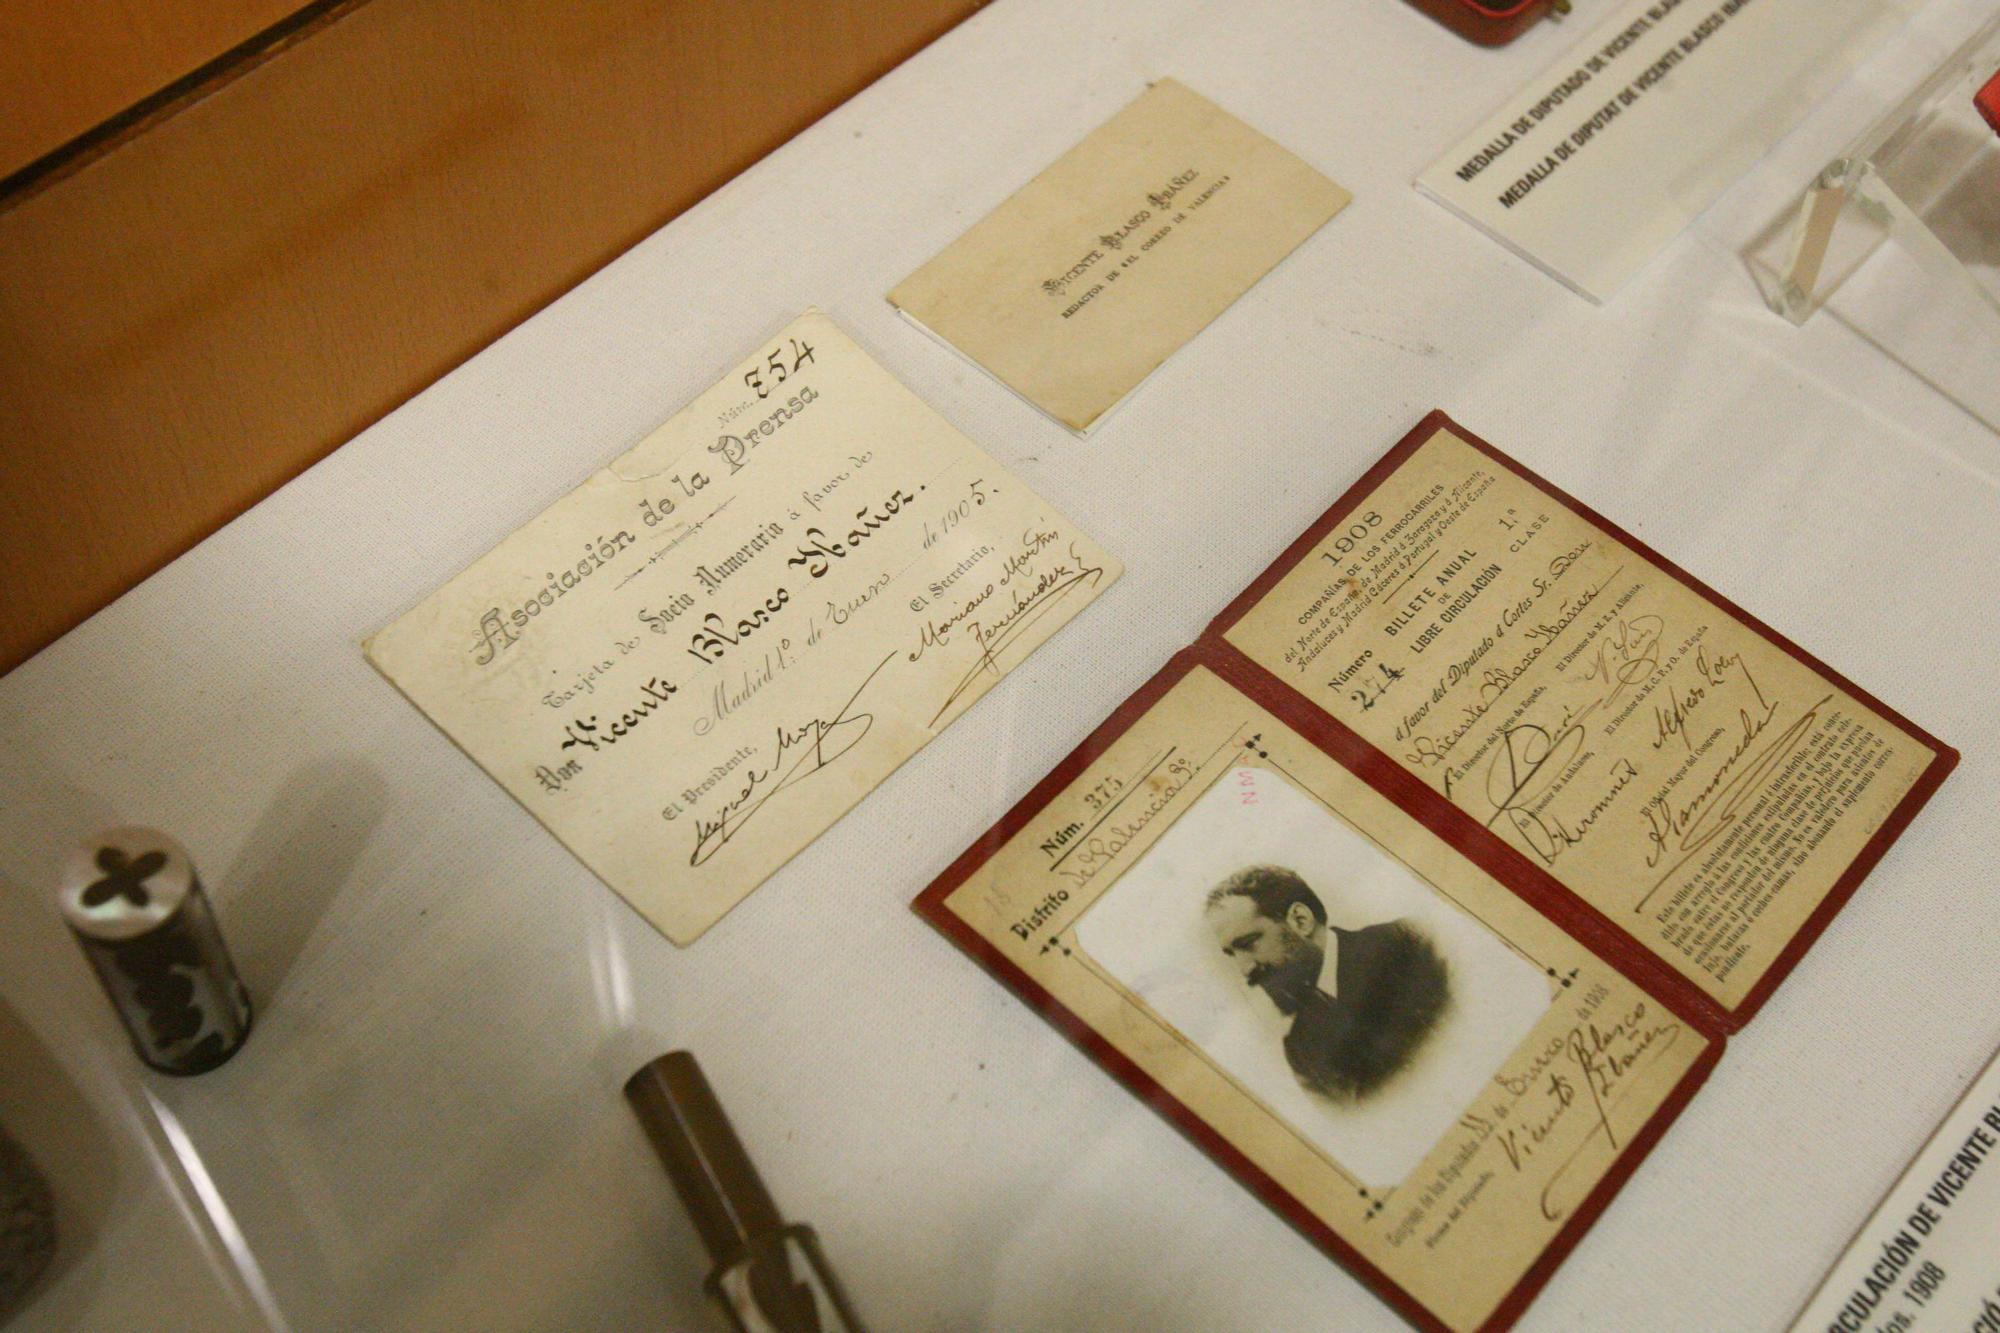 MEDALLA DE DIPUTADO DE VICENTE
MEDALLA DE DIPUTAT DE VICENTE BLASCO
VICENTE BLASCO IBÁÑEZ
REDACTOR DE «EL CORREO DE VALENCIA»
Núm. 754
Asociación de la Prensa
Tarjeta de Socio Numerario á favor de
Don Vicente Blasco Ibañez.
Madrid 1º. de Enero de 1905.
El Presidente,
Miguel Moya
El Secretario,
Mariano Martin
Fernández
1908
COMPAÑÍAS DE LOS FERROCARRILES
del Norte de España, de Madrid á Zaragoza y á Alicante,
Andaluces y Madrid Cáceres á Portugal y Oeste de España
BILLETE ANUAL
DE
LIBRE CIRCULACIÓN
1.ª
CLASE
Número
274
á favor del Diputado á Cortes Sr. Don
Vicente Blasco Ibáñez
El Director del Norte de España,
El Director de M. Z. y Alicante,
El Director de Andaluces,
El Director de M. C. P. y O. de España
Alfredo
El Oficial Mayor del Congreso,
Este billete es absolutamente personal é intransferible; está
con arreglo á las condiciones estipuladas en el contrato
entre el Congreso y las cuatro Compañías, bajo la expresa
de que éstas no responden de ninguna clase de perjuicios que puedan
ocasionarse al portador del mismo. No es valedero para asientos de
lujo, butacas ó coches-camas, sino abonando el suplemento
pondiente.
Núm. 375
Distrito de Valencia
Congreso de los Diputados 11 de Enero de 1908
Firma del Diputado,
Vicente Blasco
Ibañez
CIRCULACIÓN DE VICENTE
1908